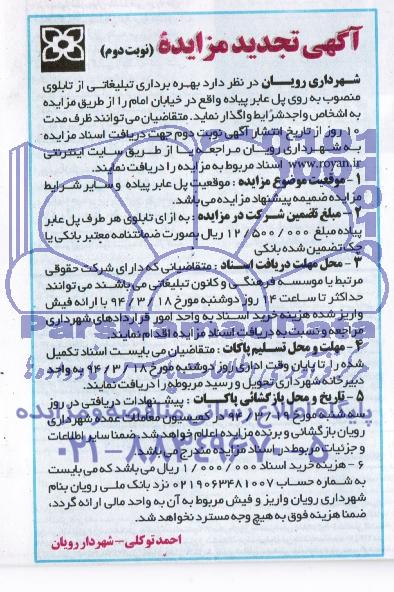 آگهی تجدید مزایدهٔ (نوبت دوم)
شهرداری رویان در نظر دارد بهره برداری تبلیغاتی از تابلوی
منصوب به روی پل عابر پیاده واقع در خیابان امام را از طریق مزایده
به اشخاص واجد شرایط واگذار نماید. متقاضیان می توانند ظرف مدت
۱۰ روز از تاریخ انتشار آگهی نوبت دوم جهت دریافت اسناد مزایده
به شهرداری رویان مراجعه یا از طریق سایت اینترنتی
www.royan.ir اسناد مربوط به مزایده را دریافت نمایند.
۱- موقعیت موضوع مزایده : موقعیت پل عابر پیاده و سایر شرایط
مزایده ضمیمه پیشنهاد مزایده می باشد.
۲- مبلغ تضمین شرکت در مزایده : به ازای تابلوی هر طرف پل عابر
پیاده مبلغ ۱۲/۵۰۰/۰۰۰ ریال بصورت ضمانتنامه معتبر بانکی یا
چک تضمین شده بانکی
۳- محل مهلت دریافت اسناد : متقاضیانی که دارای شرکت حقوقی
مرتبط یا موسسه فرهنگی و کانون تبلیغاتی می باشند می توانند
حداکثر تا ساعت ۱۴ روز دوشنبه مورخ ۹۴/۳/۱۸ با ارائه فیش
واریز شده هزینه خرید اسناد به واحد امور قراردادهای شهرداری
مراجعه و نسبت به دریافت اسناد مزایده اقدام نمایند.
۴- مهلت و محل تسلیم پاکات : متقاضیان می بایست اسناد تکمیل
شده را تا پایان وقت اداری روز دوشنبه مورخ ۹۴/۳/۱۸ به واحد
دبیرخانه شهرداری تحویل و رسید مربوطه را دریافت نمایند.
۵- تاریخ و محل بازگشائی پاکات : پیشنهادات دریافتی در روز
سه شنبه مورخ ۹۴/۳/۱۹ در کمیسیون معاملات عمده شهرداری
رویان بازگشائی و برنده مزایده اعلام خواهد شد. ضمنا سایر اطلاعات
و جزئیات مربوط در اسناد مزایده مندرج می باشد.
۶- هزینه خرید اسناد ۱/۰۰۰/۰۰۰ ریال می باشد که می بایست
به شماره حساب ۰۲۱۹۰۶۳۴۸۱۰۰۷ نزد بانک ملی رویان بنام
شهرداری رویان واریز و فیش مربوط به آن به واحد مالی ارائه گردد،
ضمنا هزینه فوق به هیچ وجه مسترد نخواهد شد.
احمد توکلی - شهردار رویان